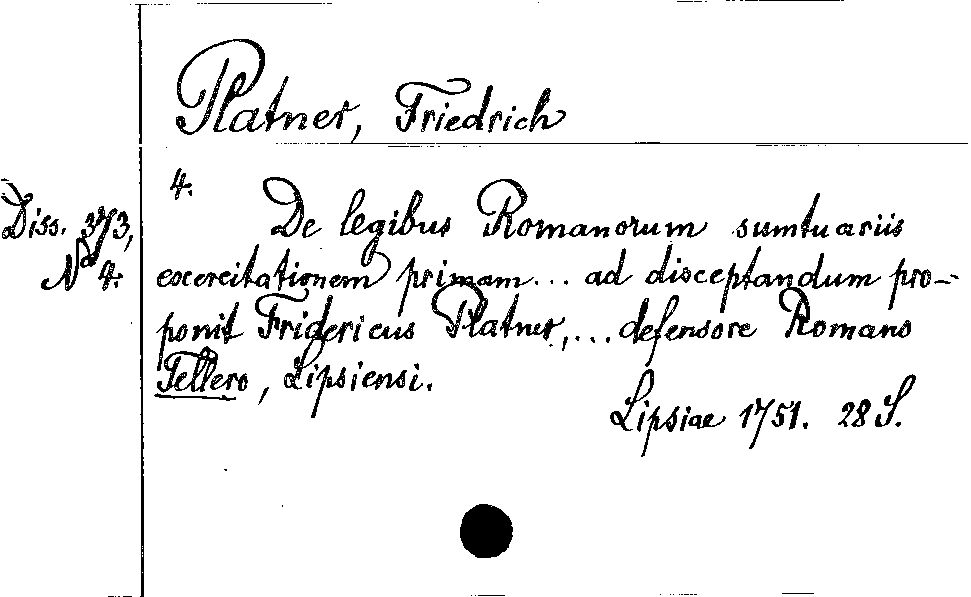 Platner, Friedrich
Diss. 373,
No 4.
4.
De legibus Romanorum sumtuariis
exercitationem primam... ad disceptandum pro-
ponit Fridericus Platner,... defensore Romano
Tellero, Lipsiensi.
Lipsiae 1751. 28 S.